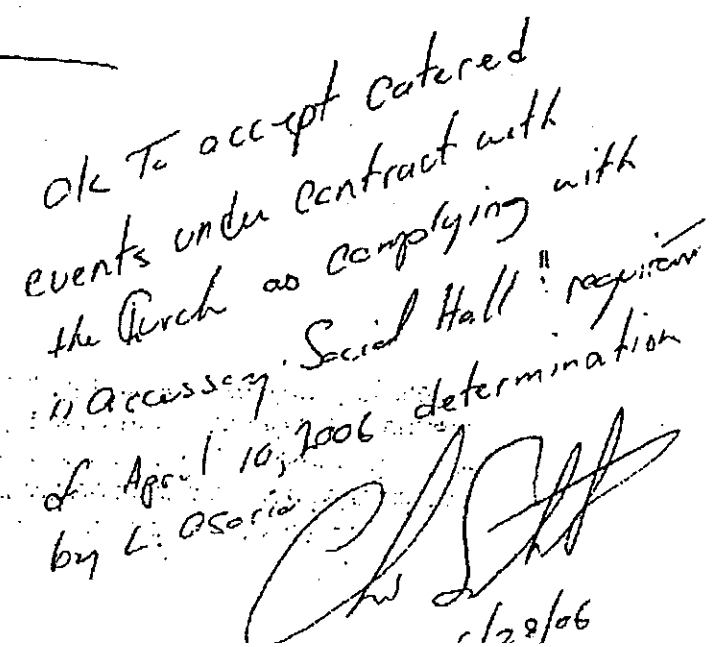 Ok To accept Catered
events under Contract with
the Church as Complying with
"Accessory Social Hall" requirem
of April 10, 2006 determination
by L. Osorio
/28/06